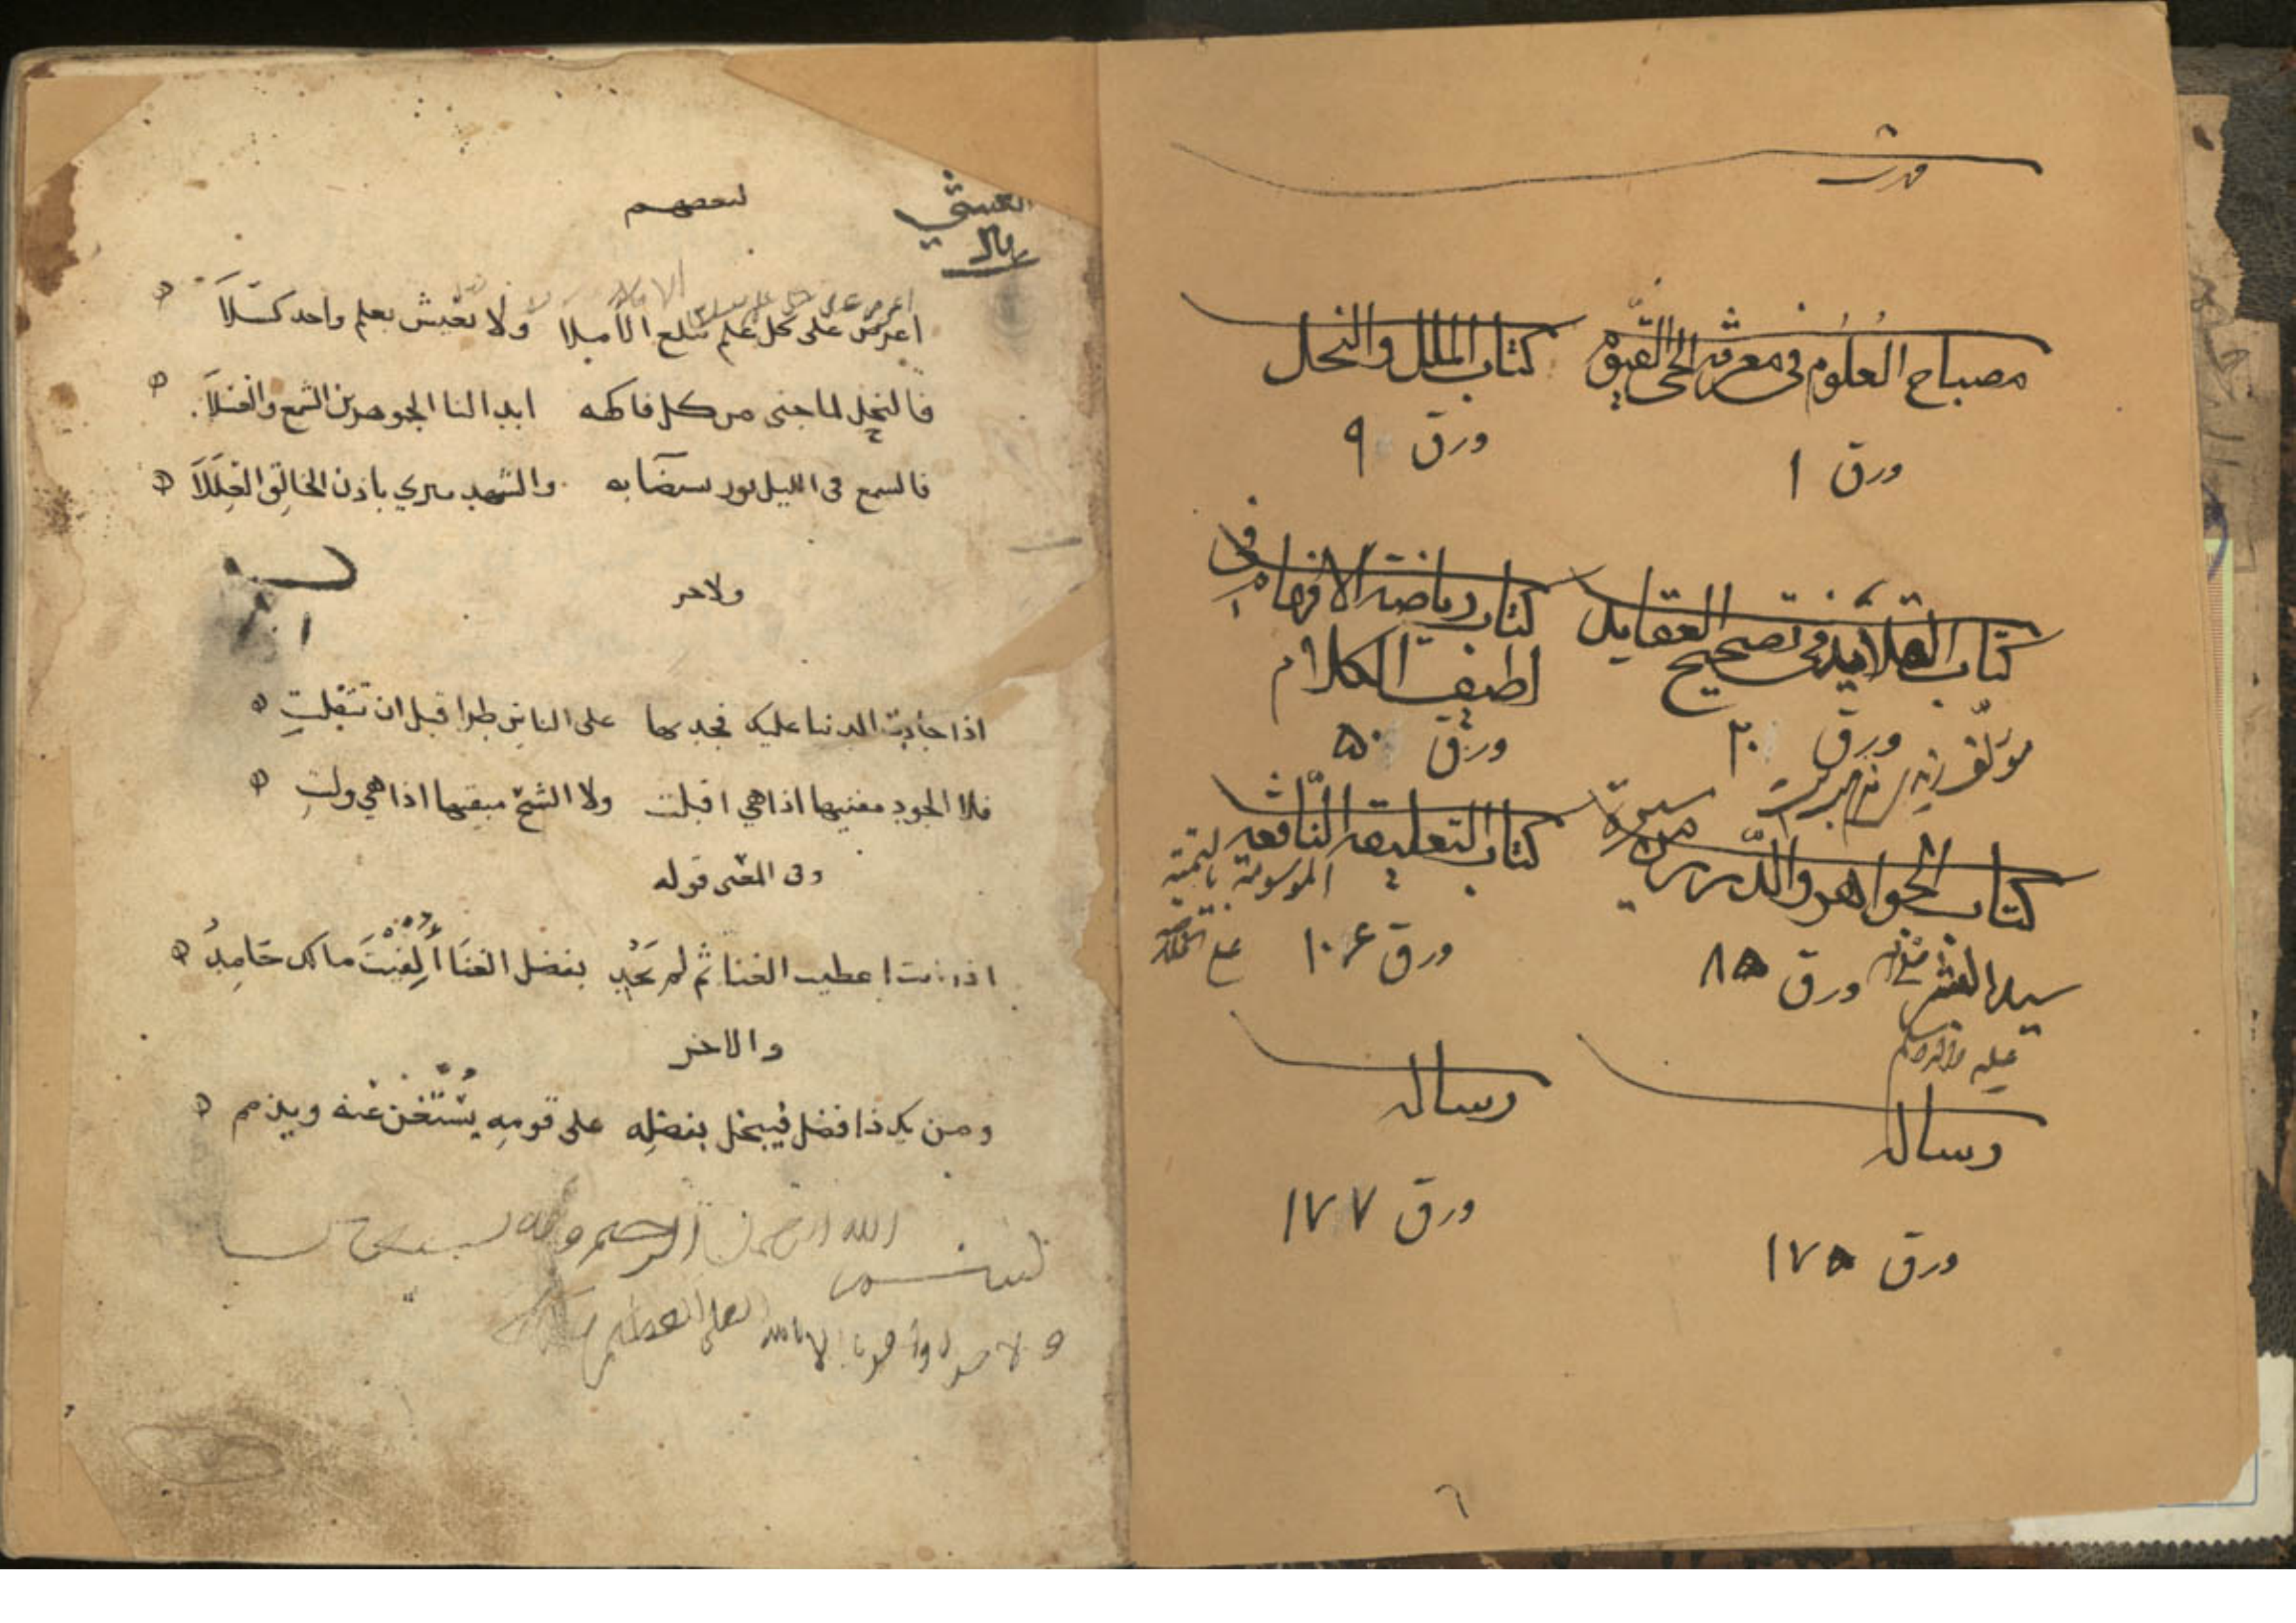 فهرست
مصباح العلوم في معرفة الحي القيوم
ورق ١
كتاب الملل والنحل
ورق ٩
كتاب القلائد في تصحيح العقايد
ورق ٣٠
مؤلف
كتاب رياضة الافهام في
لطيف الكلام
ورق ٥٠
كتاب الجواهر والدرر من سيرة
سيد البشر
ورق ٨٥
عليه
كتاب التعليقه النافعه
الموسومة
ورق ١٠٤
رساله
ورق ١٧٥
رساله
ورق ١٧٧
٦
لبعضهم
اعرض على كل علم تبلغ الأملا ولا تعيش بعلم واحد كسلا
فالنحل لما جنى من كل فاكهه ابدا لنا الجوهرين الشمع والعسلا
فالشمع في الليل نور يستضا به والشهد يبري باذن الخالق العللا
ولاخر
اذا جادت الدنيا عليك فجد بها على الناس طرا قبل ان تتفلت
فلا الجود مفنيها اذا هي اقبلت ولا الشح مبقيها اذا هي ولت
وفي المعنى قوله
اذا انت اعطيت الغنا ثم لم تجد بفضل الغنا ألفيت مالك حامد
والاخر
ومن يك ذا فضل فيبخل بفضله على قومه يستغن عنه ويذمم
بسم الله الرحمن الرحيم وبه نستعين
ولا حول ولا قوة الا بالله العلي العظيم